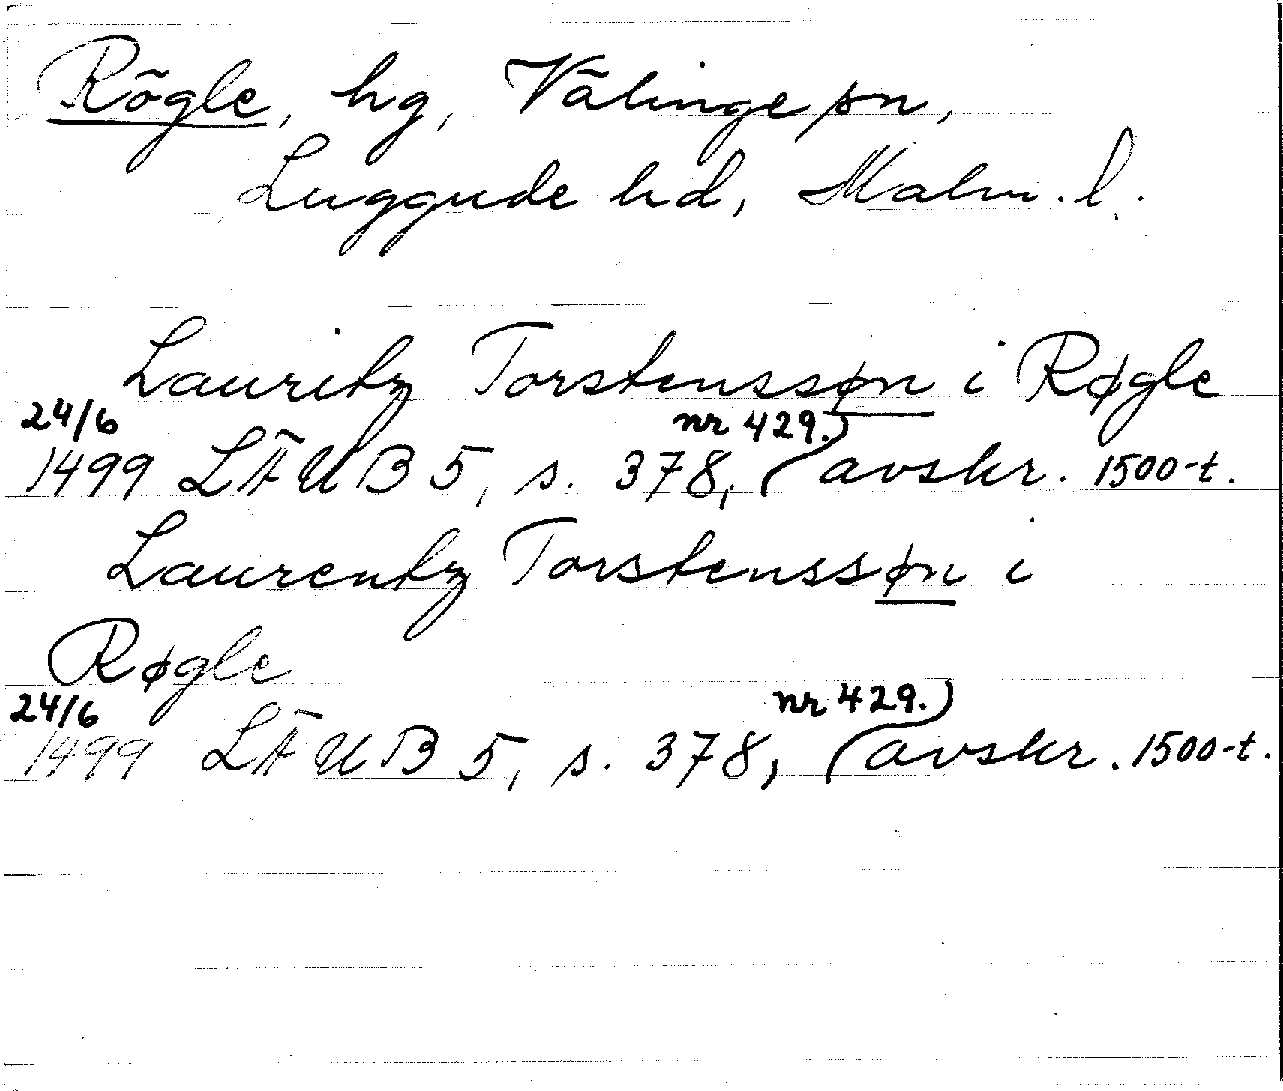 Rögle, hg, Välinge sn,
Luggude hd, Malm. l.
Lauritz Torstenssøn i Røgle
24/6 nr 429.)
1499 LÄUB 5, s. 378, (avskr. 1500-t.
Laurentz Torstenssøn i
Røgle
24/6 nr 429.)
1499 LÄUB 5, s. 378, (avskr. 1500-t.